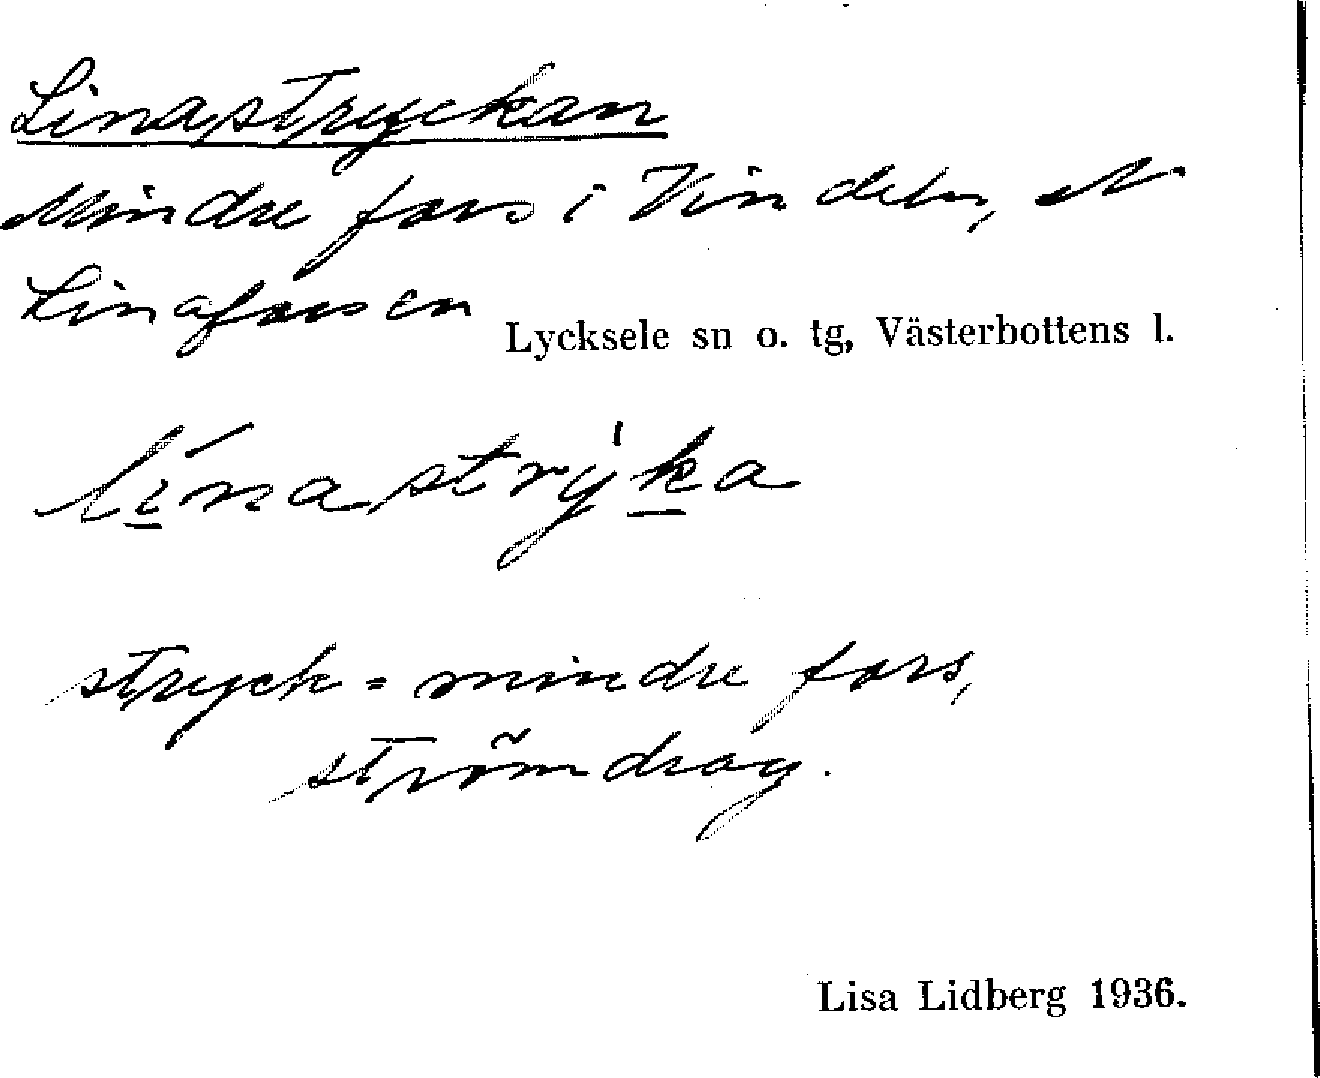 Linastryckan
Mindre fors i Vindeln, N
Linaforsen
Lycksele sn o. tg, Västerbottens l.
lı́nastrýka
stryck = mindre fors,
strömdrag.
Lisa Lidberg 1936.